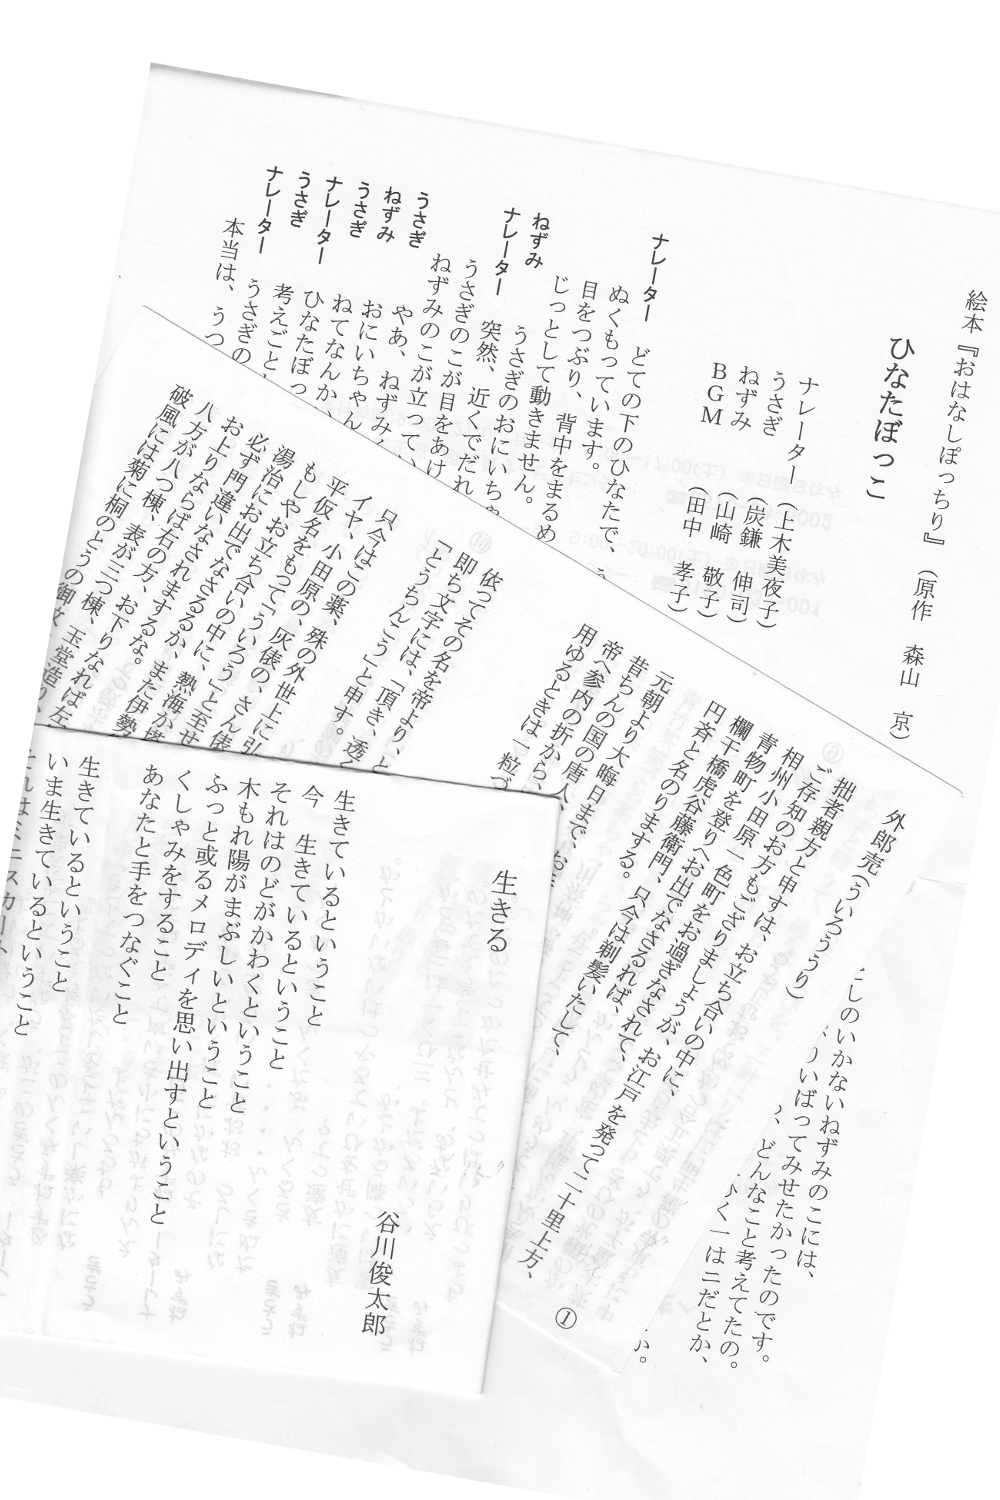 絵本『おはなしぽっちり』（原作　森山　京）
ひなたぼっこ
ナレーター（上木美夜子）
うさぎ　（炭鎌　伸司）
ねずみ　（山崎　敬子）
BGM　（田中　孝子）
ナレーター　どての下のひなたで、
ぬくもっています。
目をつぶり、背中をまるめ
じっとして動きません。
ねずみ　うさぎのおにいちゃ
ナレーター　突然、近くでだれ
うさぎのこが目をあけ
ねずみのこが立って
うさぎ　やあ、ねずみ
ねずみ　おにいちゃん
うさぎ　ねてなんかい
ナレーター　ひなたぼっ
うさぎ　考えごと
ナレーター　うさぎの
本当は、うつ
しのいかないねずみのこには、
いばってみせたかったのです。
、どんなこと考えてたの。
く一はニだとか、
か。
外郎売（ういろううり）
拙者親方と申すは、お立ち合いの中に、
ご存知のお方もござりましょうが、お江戸を発って二十里上方、
相州小田原一色町をお過ぎなされて、
青物町を登りへお出でなさるれば、
欄干橋虎谷藤衛門、只今は剃髪いたして、
円斉と名のりまする。
元朝より大晦日まで、お
昔ちんの国の唐人
帝へ参内の折から、
用ゆるときは一粒づ
依ってその名を帝より、
即ち文字には、「頂き、透く
「とうちんこう」と申す。
只今はこの薬、殊の外世上に引
イヤ、小田原の、灰俵の、さん俵
平仮名をもって「ういろう」と
もしやお立ち合いの中に、
湯治にお出でなさるるか、
必ず門違いなされまするな。
お上りならば右の方、お下りなれば左
八方が八つ棟、表が三つ棟、玉堂造り、
破風には菊に桐のとうの御
①
生きる
谷川俊太郎
生きているということ
今　生きているということ
それはのどがかわくということ
木もれ陽がまぶしいということ
ふっと或るメロディを思い出すということ
くしゃみをすること
あなたと手をつなぐこと
生きているということ
いま生きているということ
それはミニスカート